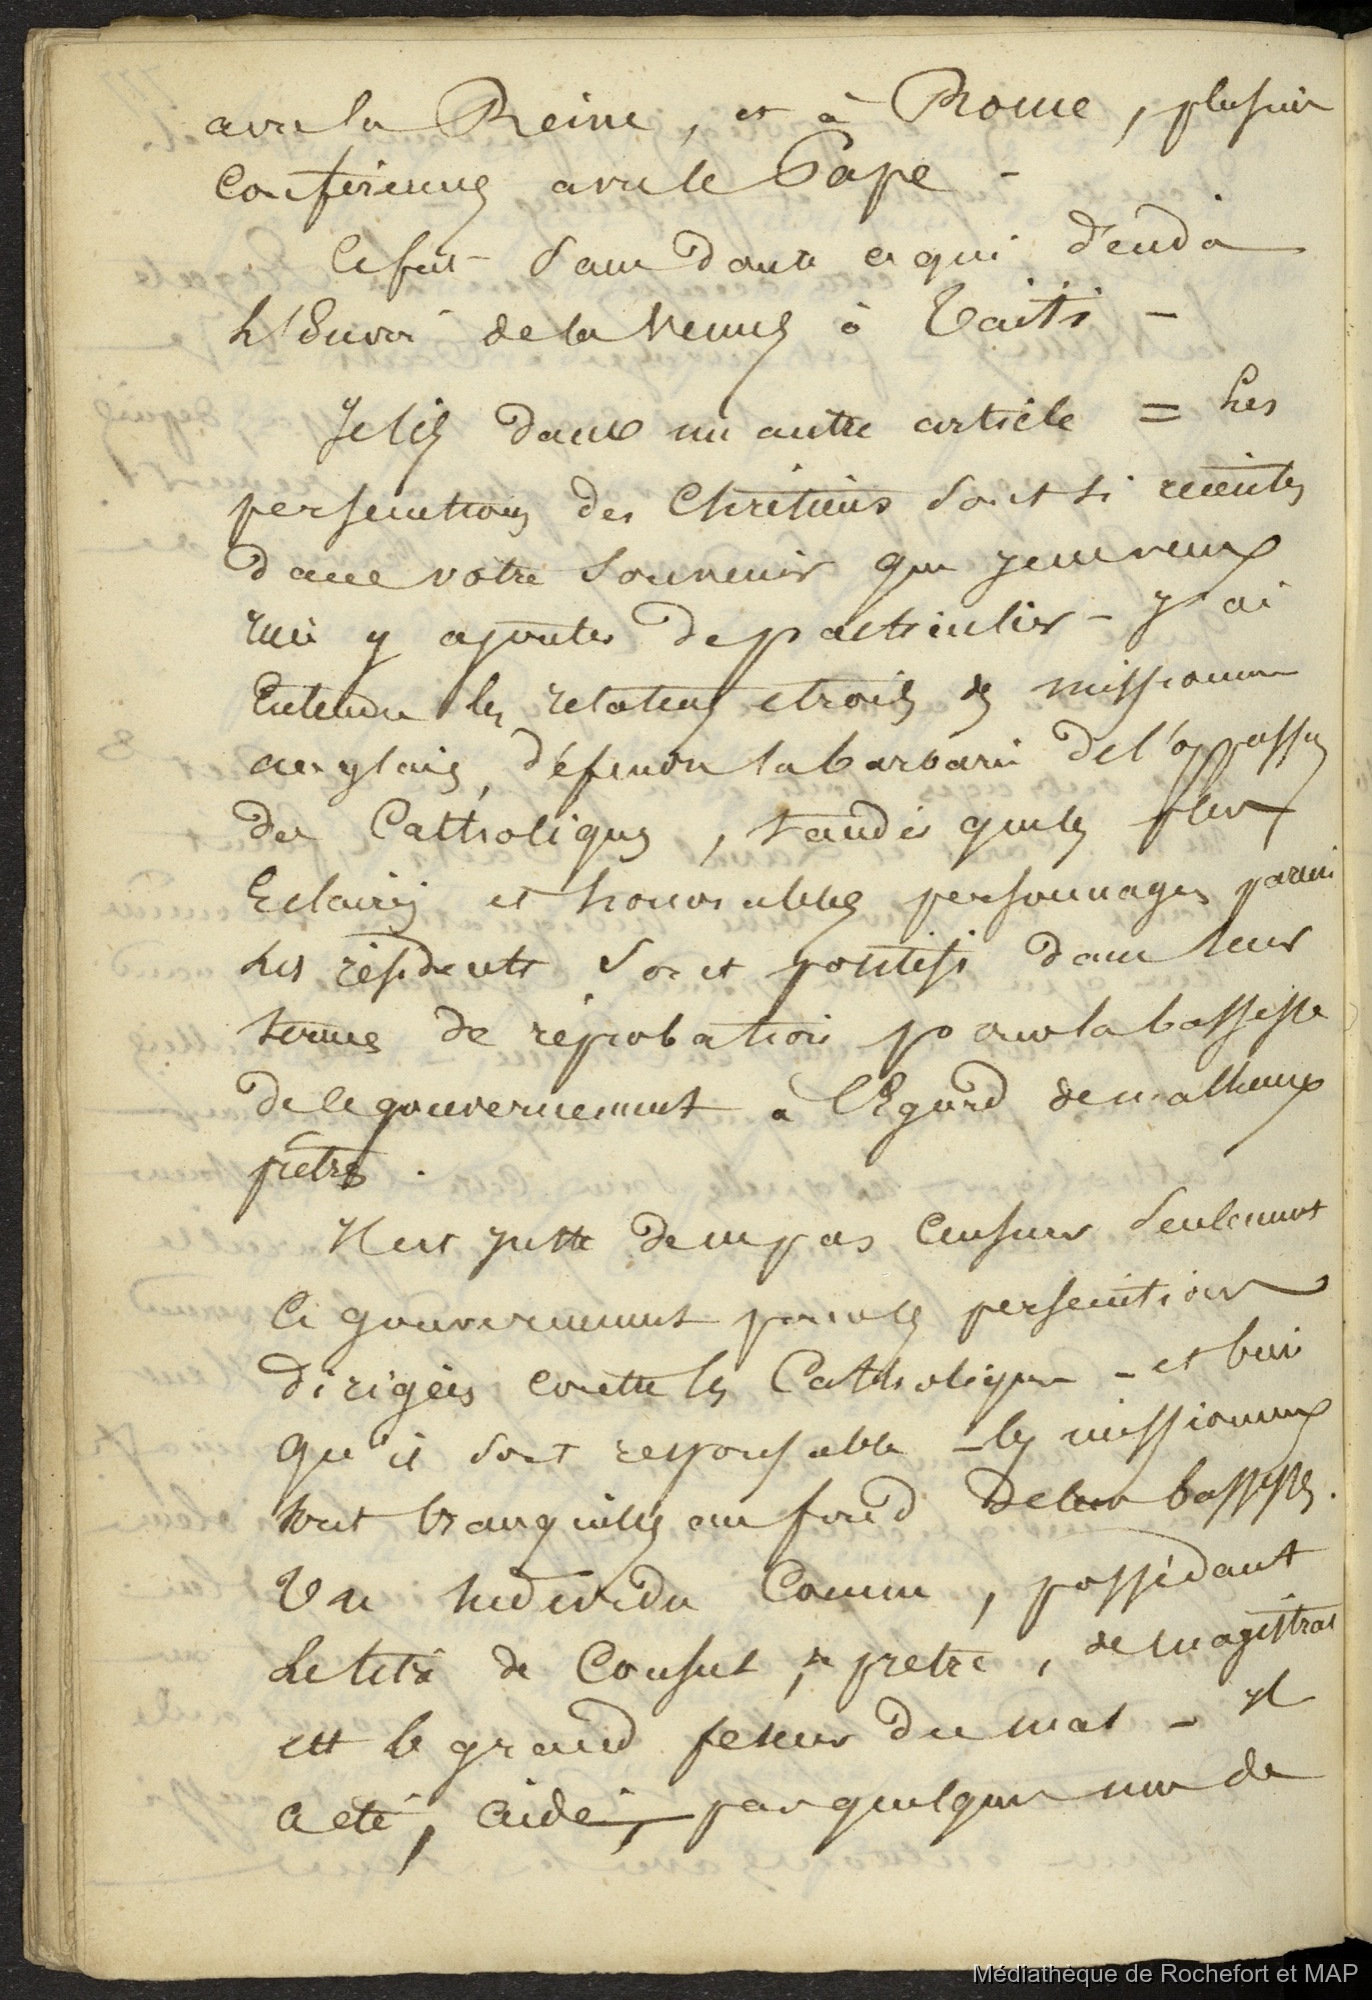 avec la Reine, et à Rome, plusieurs
Conférences avec le Pape -
Ce fut sans doute ce qui décida
L'Envoi de la Venus à Taïti -
Je lis dans un autre article = Les
persecutions des Chrétiens sont si récentes
dans votre souvenir que je ne veux
rien y ajouter de particulier - j'ai
Entendu les des missionnaires
anglais, la barbarie de l'
des Catholiques, tandis que les plus
Eclairés et honorables personnages parmi
Les résidents sont positifs dans leurs
termes de réprobation pour la bassesse
de le gouvernement à l'Egard de malheureux
prêtres.
Il est juste de ne pas Censurer seulement
Ce gouvernement pour les persecutions
dirigées contre les Catholiques - et bien
qu'il soit responsable - les missionnaires
sont tranquilles au fond de leur bassesses.
Un Individu Connu, possédant
Le titre de Consul, de prêtre, de magistrat
est le grand faiseur du mal - Il
a été, aidé, par quelques uns de
Médiathèque de Rochefort et MAP